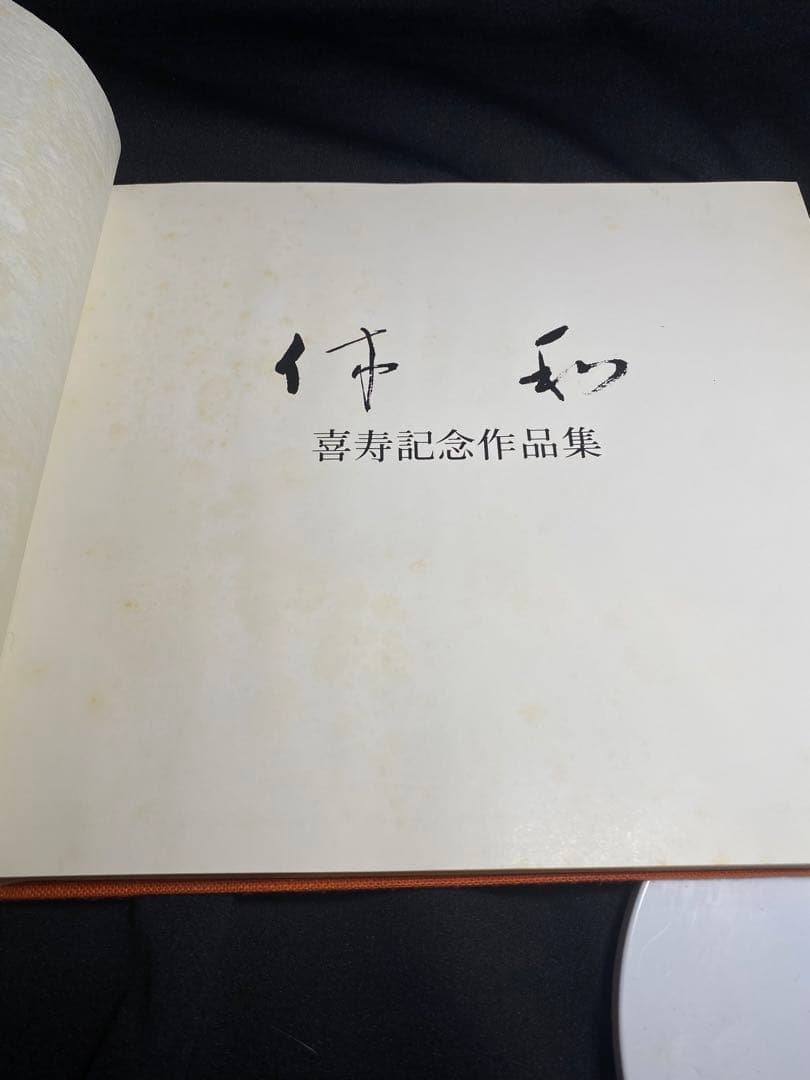 和
喜寿記念作品集